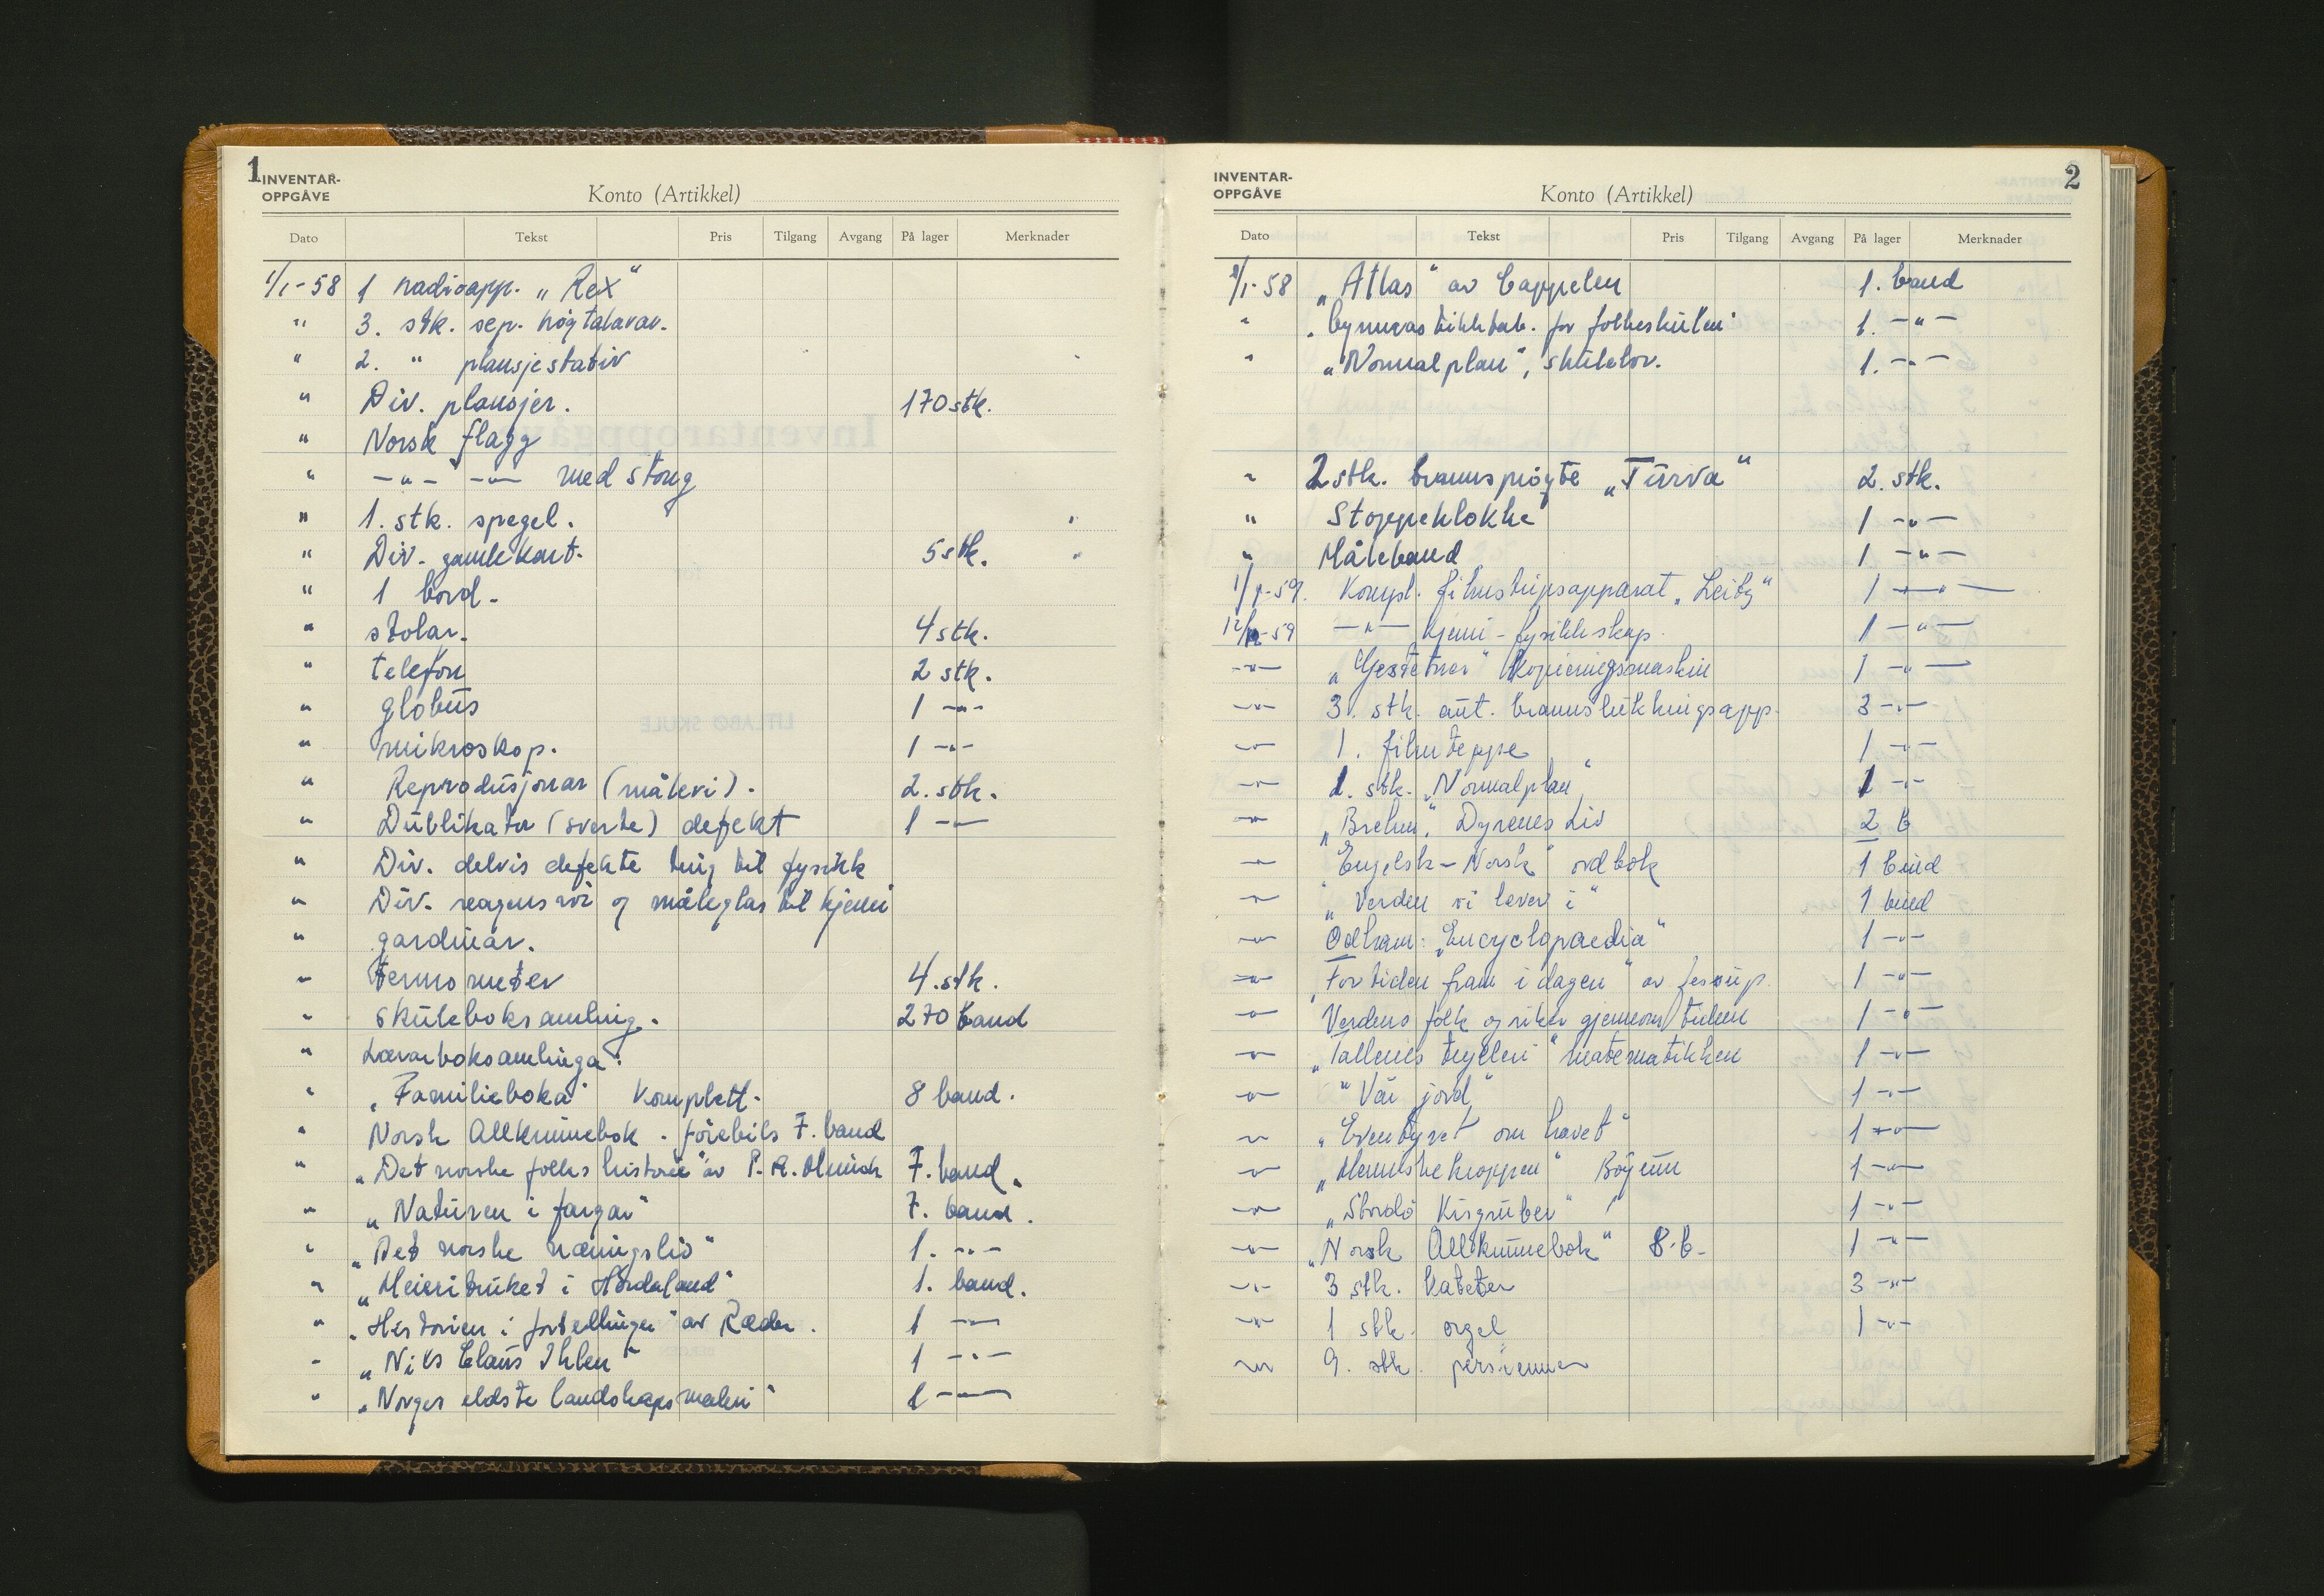 1
INVENTAR-
OPPGÅVE
Konto (Artikkel)
Dato Tekst Pris Tilgang Avgang På lager Merknader
1/1-58 1 radioapp. „Rex"
" 3. stk. sep. høgtalarar.
" 2. " plansjestativ
" Div. plansjer. 170 stk.
" Norsk flagg
" -"- -"- med stong
" 1. stk. spegel.
" Div. gamle kart. 5 stk.
" 1 bord.
" stolar. 4 stk.
" telefon 2 stk.
" globus 1 -"-
" mikroskop. 1 -"-
" Reprodusjonar (måleri). 2. stk.
" Dublikator (sverte) defekt 1 -"-
" Div. delvis defekte ting til fysikk
" Div. reagensrör og måleglas til kjemi
" gardinar.
" termometer 4. stk.
" skuleboksamling. 270 band
" Lærarboksamlinga:
" „Familieboka" komplett. 8 band.
" Norsk Allkunnebok. förebils 7. band
" „Det norske folks historie" av P.A. Munch 7. band.
" „Naturen i fargar" 7. band.
" „Det norske næringsliv" 1. -"-
" „Meieribruket i Hordaland" 1. band.
" „Historien i fortellinger" av Ræder. 1 -"-
" „Nils Claus Ihlen" 1 -"-
" „Norges eldste landskapsmaleri" 1 -"-
INVENTAR-
OPPGÅVE
Konto (Artikkel)
2
Dato Tekst Pris Tilgang Avgang På lager Merknader
1/1-58 „Atlas" av Cappelen 1. band
" for folkeskulen" 1. -"-
" „Normalplan", skulelov. 1. -"-
" 2 stk. brannspröyte „Turva" 2. stk.
" Stoppeklokke 1 -"-
" Måleband 1 -"-
1/1-59. Kompl. filmstripsapparat „Leitz" 1 -"-
12/12-59 -"- kjemi-fysikkskap. 1 -"-
-"- „Gestetner" kopieringsmaskin 1 -"-
-"- 3. stk. aut. brannslukkingsapp. 3 -"-
-"- 1. filmteppe 1 -"-
-"- 1. stk. „Normalplan" 1 -"-
-"- „Brehm". Dyrenes Liv 2 b
-"- „Engelsk-Norsk" ordbok 1 bind
-"- „Verden vi lever i" 1 bind
-"- Odham: „Encyclopaedia" 1 -"-
-"- „Fortiden fram i dagen" av 1 -"-
-"- Verdens folk og riker gjennom tidene 1 -"-
-"- „Tallenes trylleri" matematikken 1 -"-
-"- „Vår jord" 1 -"-
-"- „Eventyret om havet" 1 -"-
-"- „Menneskekroppen" Böyum 1 -"-
-"- „Stordö Kisgruber" 1 -"-
-"- „Norsk Allkunnebok" 8. b. 1 -"-
-"- 3 stk. kateter 3 -"-
-"- 1 stk. orgel 1 -"-
-"- 9. stk. persienner